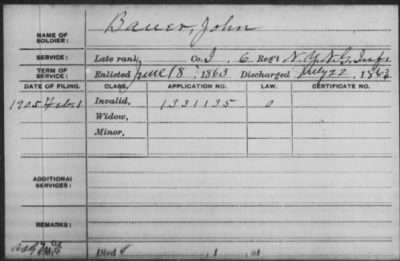 Bauer, John
NAME OF SOLDIER:
SERVICE: Late rank, Co. I, 6 Reg't N.Y.N.G. Inf.
TERM OF SERVICE: Enlisted June 18, 1863 Discharged July 22, 1863
DATE OF FILING. CLASS. APPLICATION NO. LAW. CERTIFICATE NO.
1905 Feb. 1 Invalid, 1331135 0
Widow,
Minor,
ADDITIONAL SERVICES:
REMARKS:
Died , 1 , at